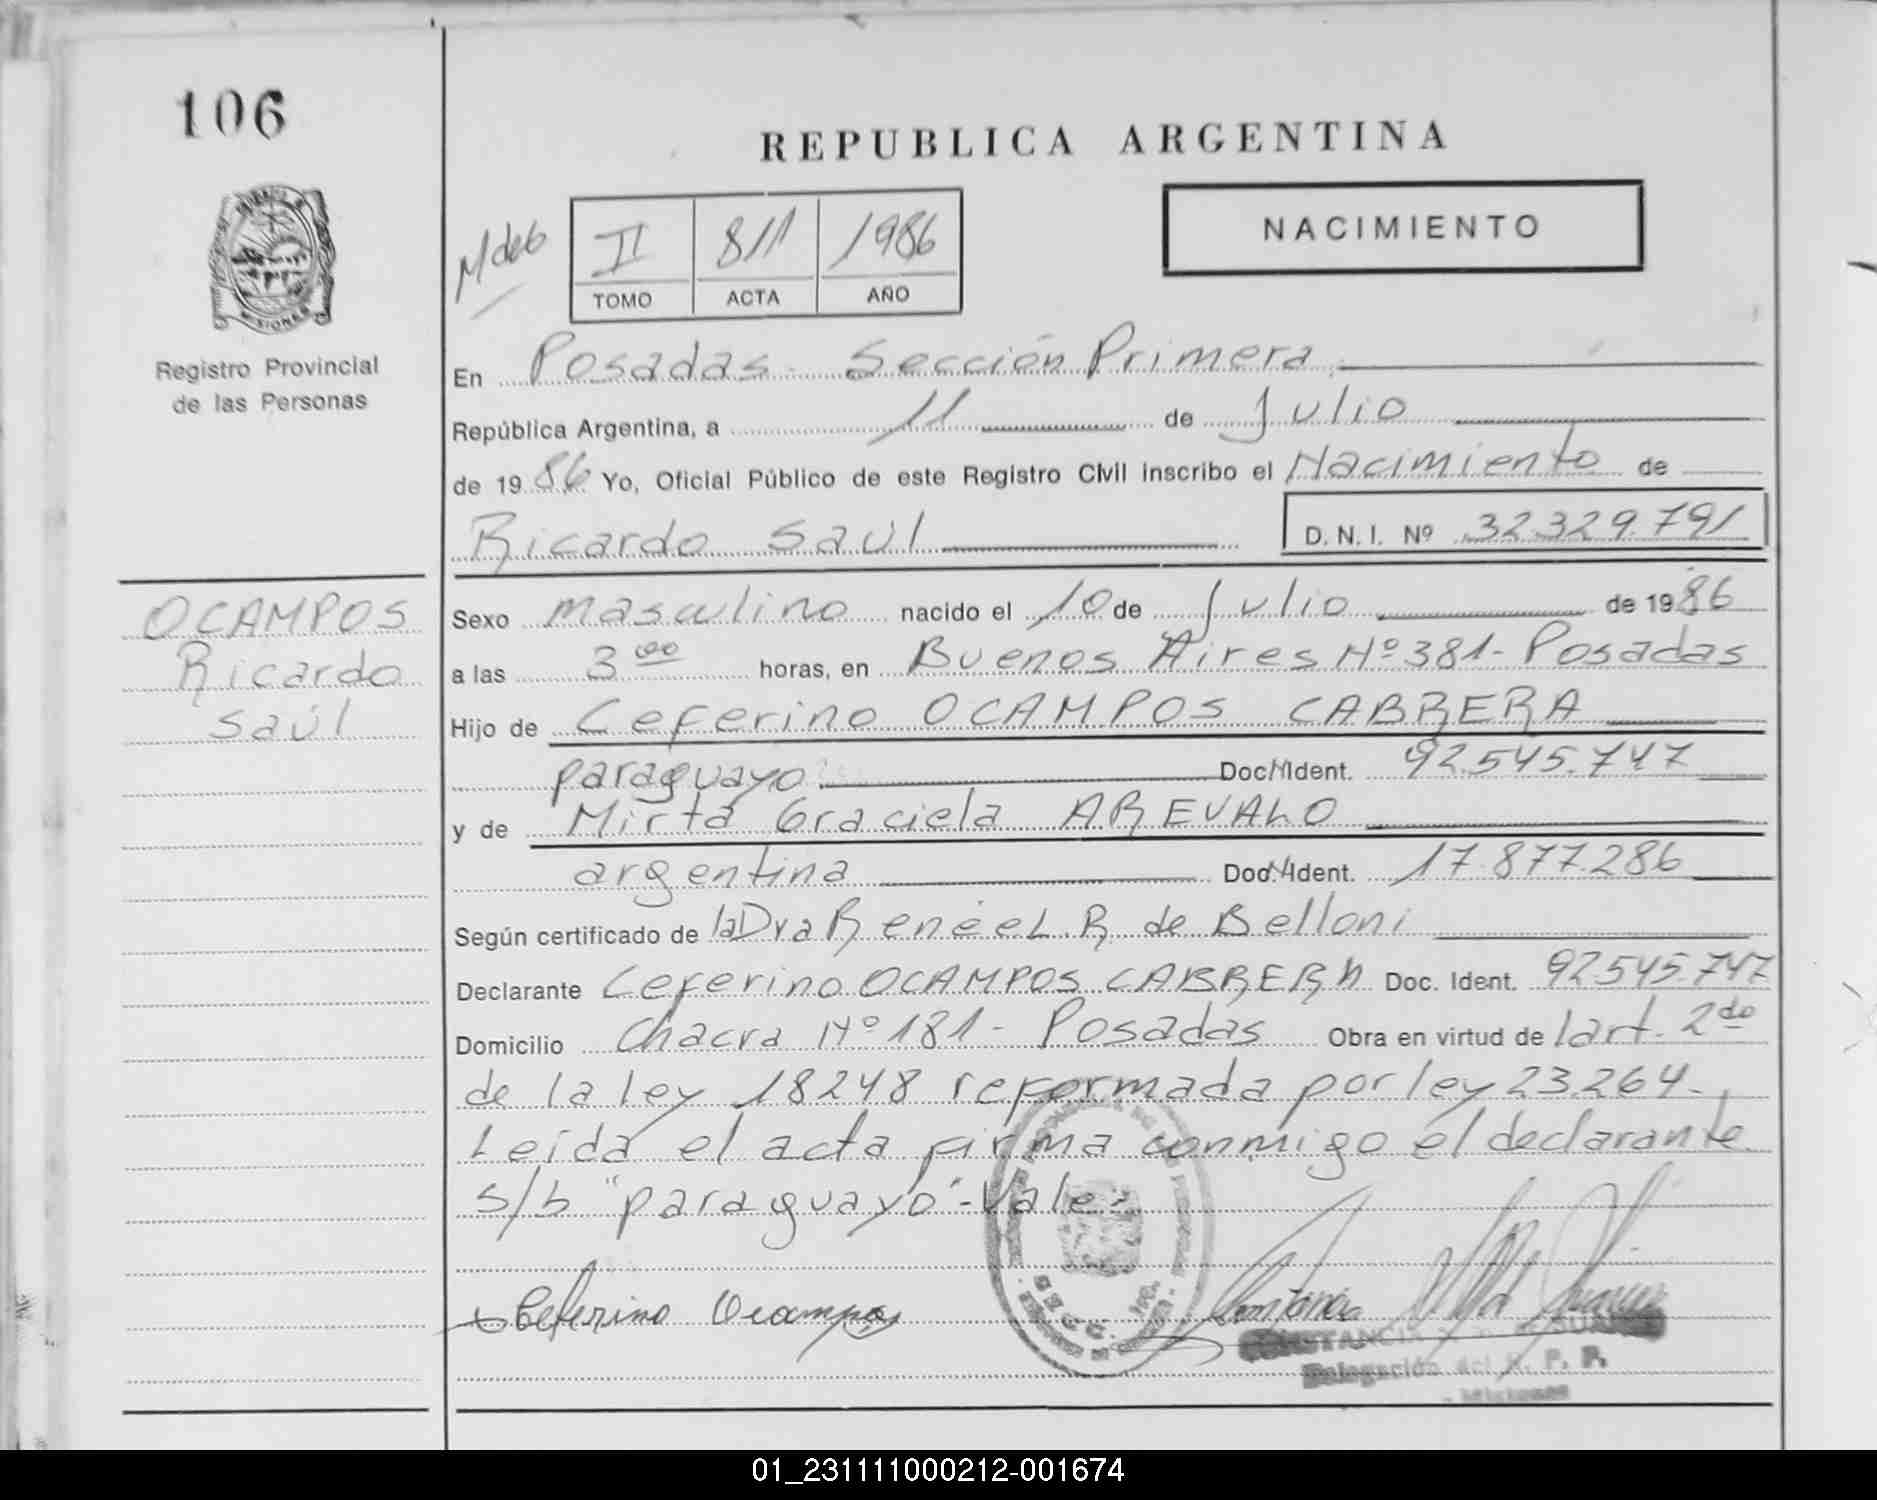 106
REPUBLICA ARGENTINA
NACIMIENTO
II 811 1986
TOMO ACTA AÑO
MISIONES
Registro Provincial
de las Personas
En Posadas - Sección Primera
República Argentina, a 11 de Julio
de 1986 Yo, Oficial Público de este Registro Civil inscribo el Nacimiento de
Ricardo Saúl D.N.I. Nº 32.329.791
OCAMPOS
Ricardo
Saúl
Sexo masculino nacido el 10 de Julio de 1986
a las 3 00 horas, en Buenos Aires Nº 381 - Posadas
Hijo de Ceferino OCAMPOS CABRERA
paraguayo Doc. Ident. 92.545.747
y de Mirta Graciela AREVALO
argentina Doc. Ident. 17.877.286
Según certificado de la Dra Renée L. R. de Belloni
Declarante Ceferino OCAMPOS CABRERA Doc. Ident. 92.545.747
Domicilio Chacra Nº 181 - Posadas Obra en virtud de lart. 2do
de la ley 18248 reformada por ley 23.264.-
Leída el acta firma conmigo el declarante
s/b "paraguayo" - Vale:
Ceferino Ocampos
Delegación del R. P. P.
Misiones
01_231111000212-001674